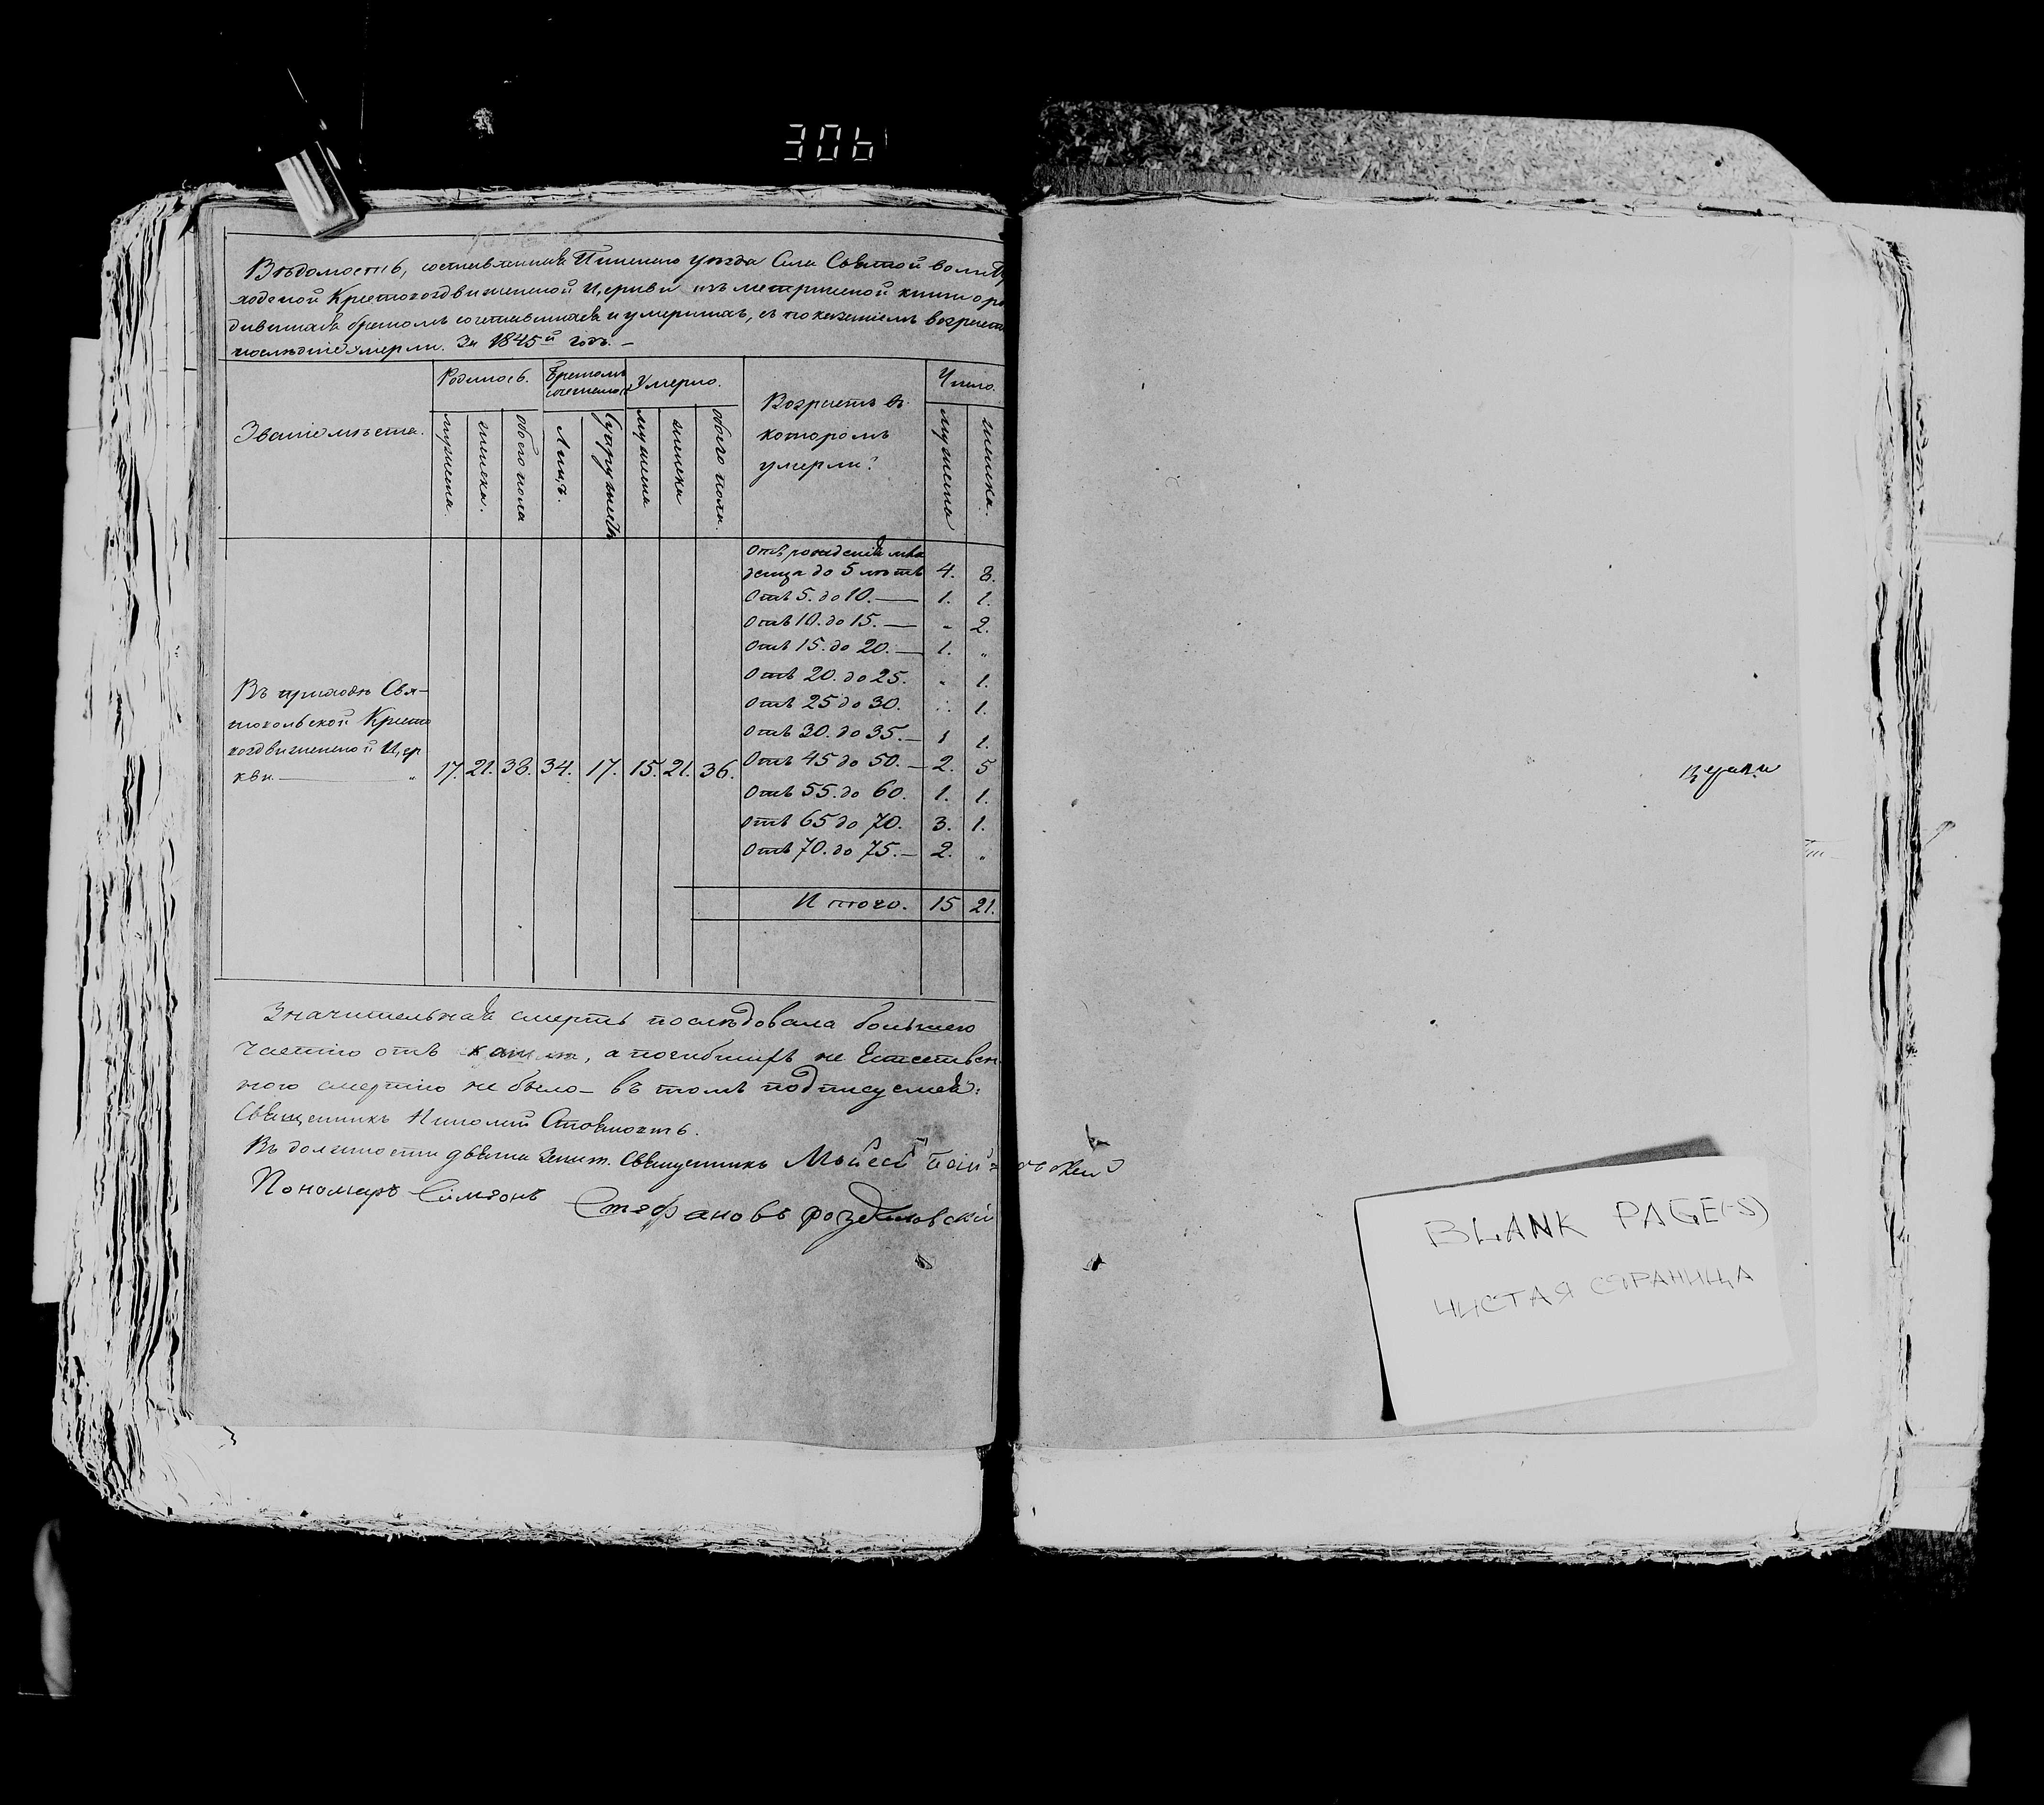 306
Вѣдомость, составленная Пинскаго уѣзда Села Святой воли
ходской Крестовоздвиженской Церкви изъ метрической книги о ро
дившихся бракомъ сочетавшихся и умершихъ, съ показаніемъ возраста
послѣдніе умерли. За 1845й годъ. –
Званіе мѣста.
Родилось.
Бракомъ сочетано.
Умерло.
Возрастъ въ
которомъ
умерли?
Число.
мужеска.
женска.
обоего пола
Лицъ.
Супружествъ
мужеска
женска
обоего пола.
мужеска
женска.
Отъ рожденія мла
денца до 5 лѣтъ 4. 8.
Отъ 5. до 10. — 1. 1.
Отъ 10. до 15. — „ 2.
Отъ 15. до 20. — 1. „
Отъ 20. до 25. „ 1.
Отъ 25 до 30. „ 1.
Отъ 30. до 35. — 1 1.
Отъ 45 до 50. — 2. 5
Отъ 55. до 60. 1. 1.
Отъ 65 до 70. 3. 1.
Отъ 70. до 75. — 2. „
Въ приходѣ Свя-
товольской Кресто
воздвиженской Цер
кви. — „ 17. 21. 38. 34. 17. 15. 21. 36.
Итого. 15 21.
Значительная смерть послѣдовала большею
частію отъ, а погибшихъ не Естествен
ною смертію не было – въ томъ подписуемся:
Священникъ
Въ должности дьячка Священникъ Моѵсей
Пономаръ Симеонъ Стефановъ
BLANK PAGE(-S)
ЧИСТАЯ СТРАНИЦА